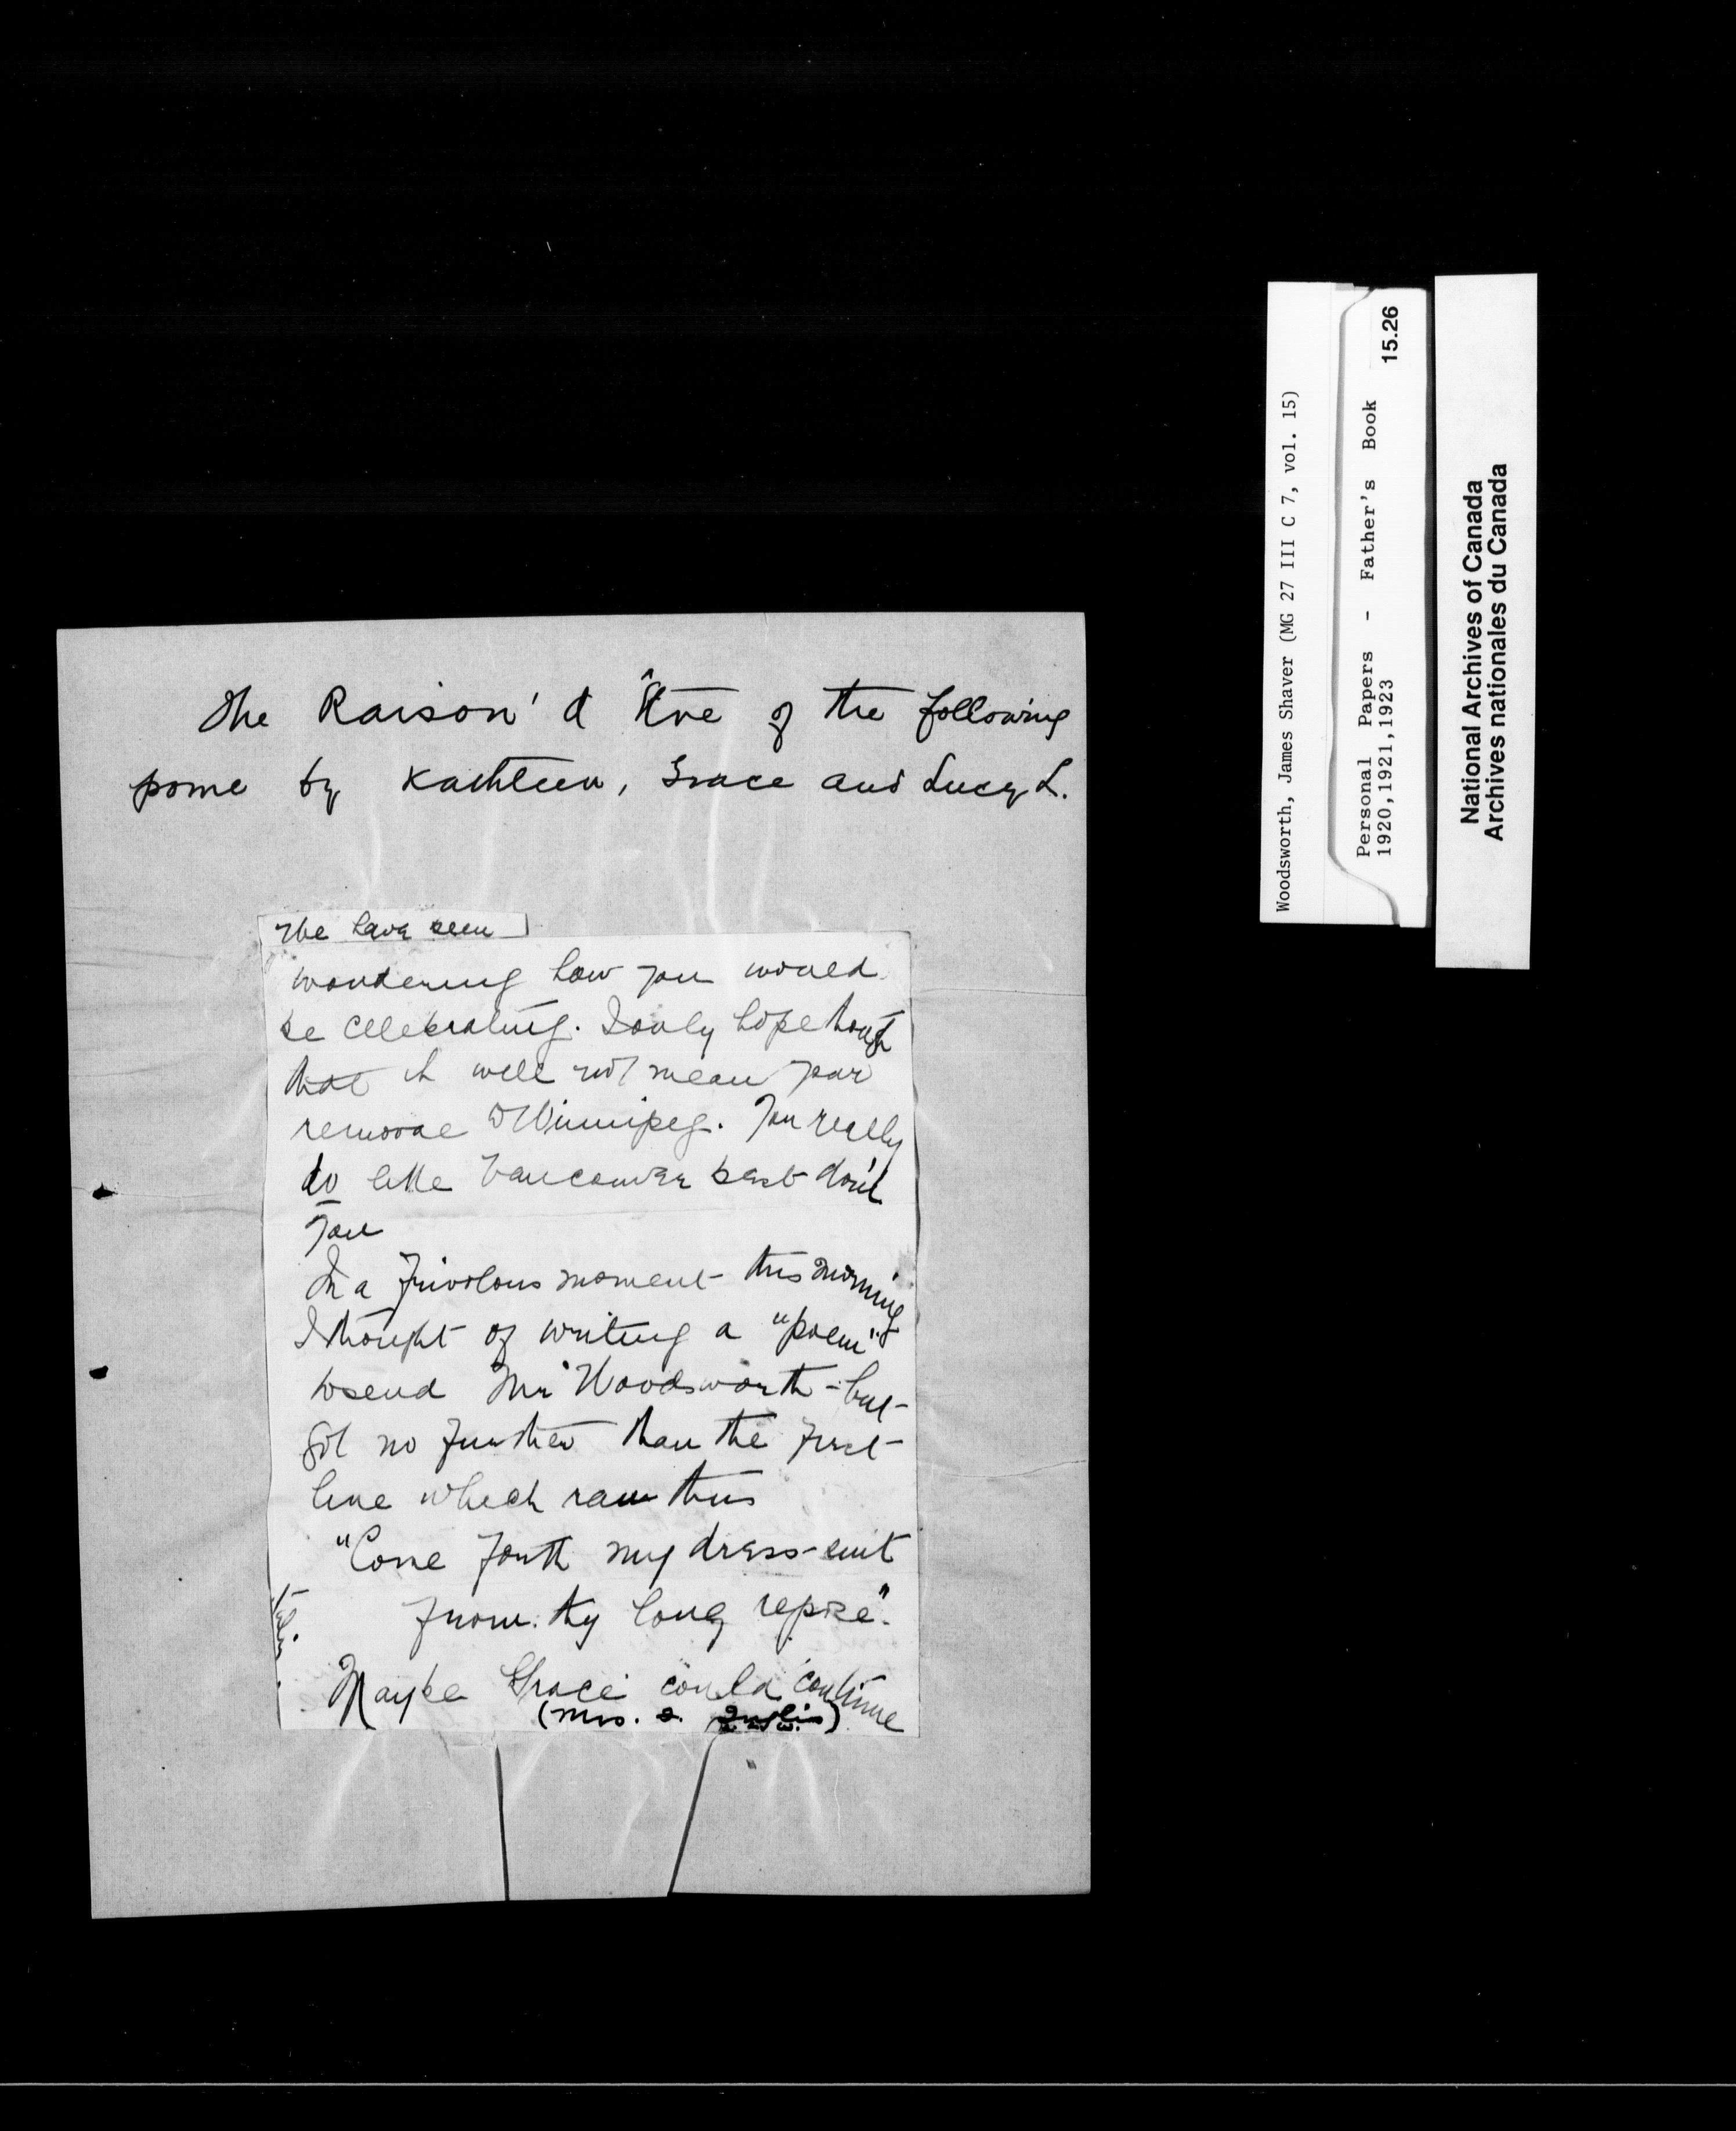 The Raison' d être of the following
pome by Kathleen, Grace and Lucy L.
We have been
wondering how you would
be celebrating. I only hope though
that it will not mean your
removal to Winnipeg. You really
do like Vancouver best don't
you
In a frivolous moment this morning
I thought of writing a "poem"
to send Mr Woodsworth - but
got no further than the first
line which ran thus
"Come forth my dress-suit
from thy long repose".
Maybe Grace could continue
(Mrs. J. Inglis)
Woodsworth, James Shaver (MG 27 III C 7, vol. 15)
Personal Papers - Father's Book 15.26
1920,1921,1923
National Archives of Canada
Archives nationales du Canada